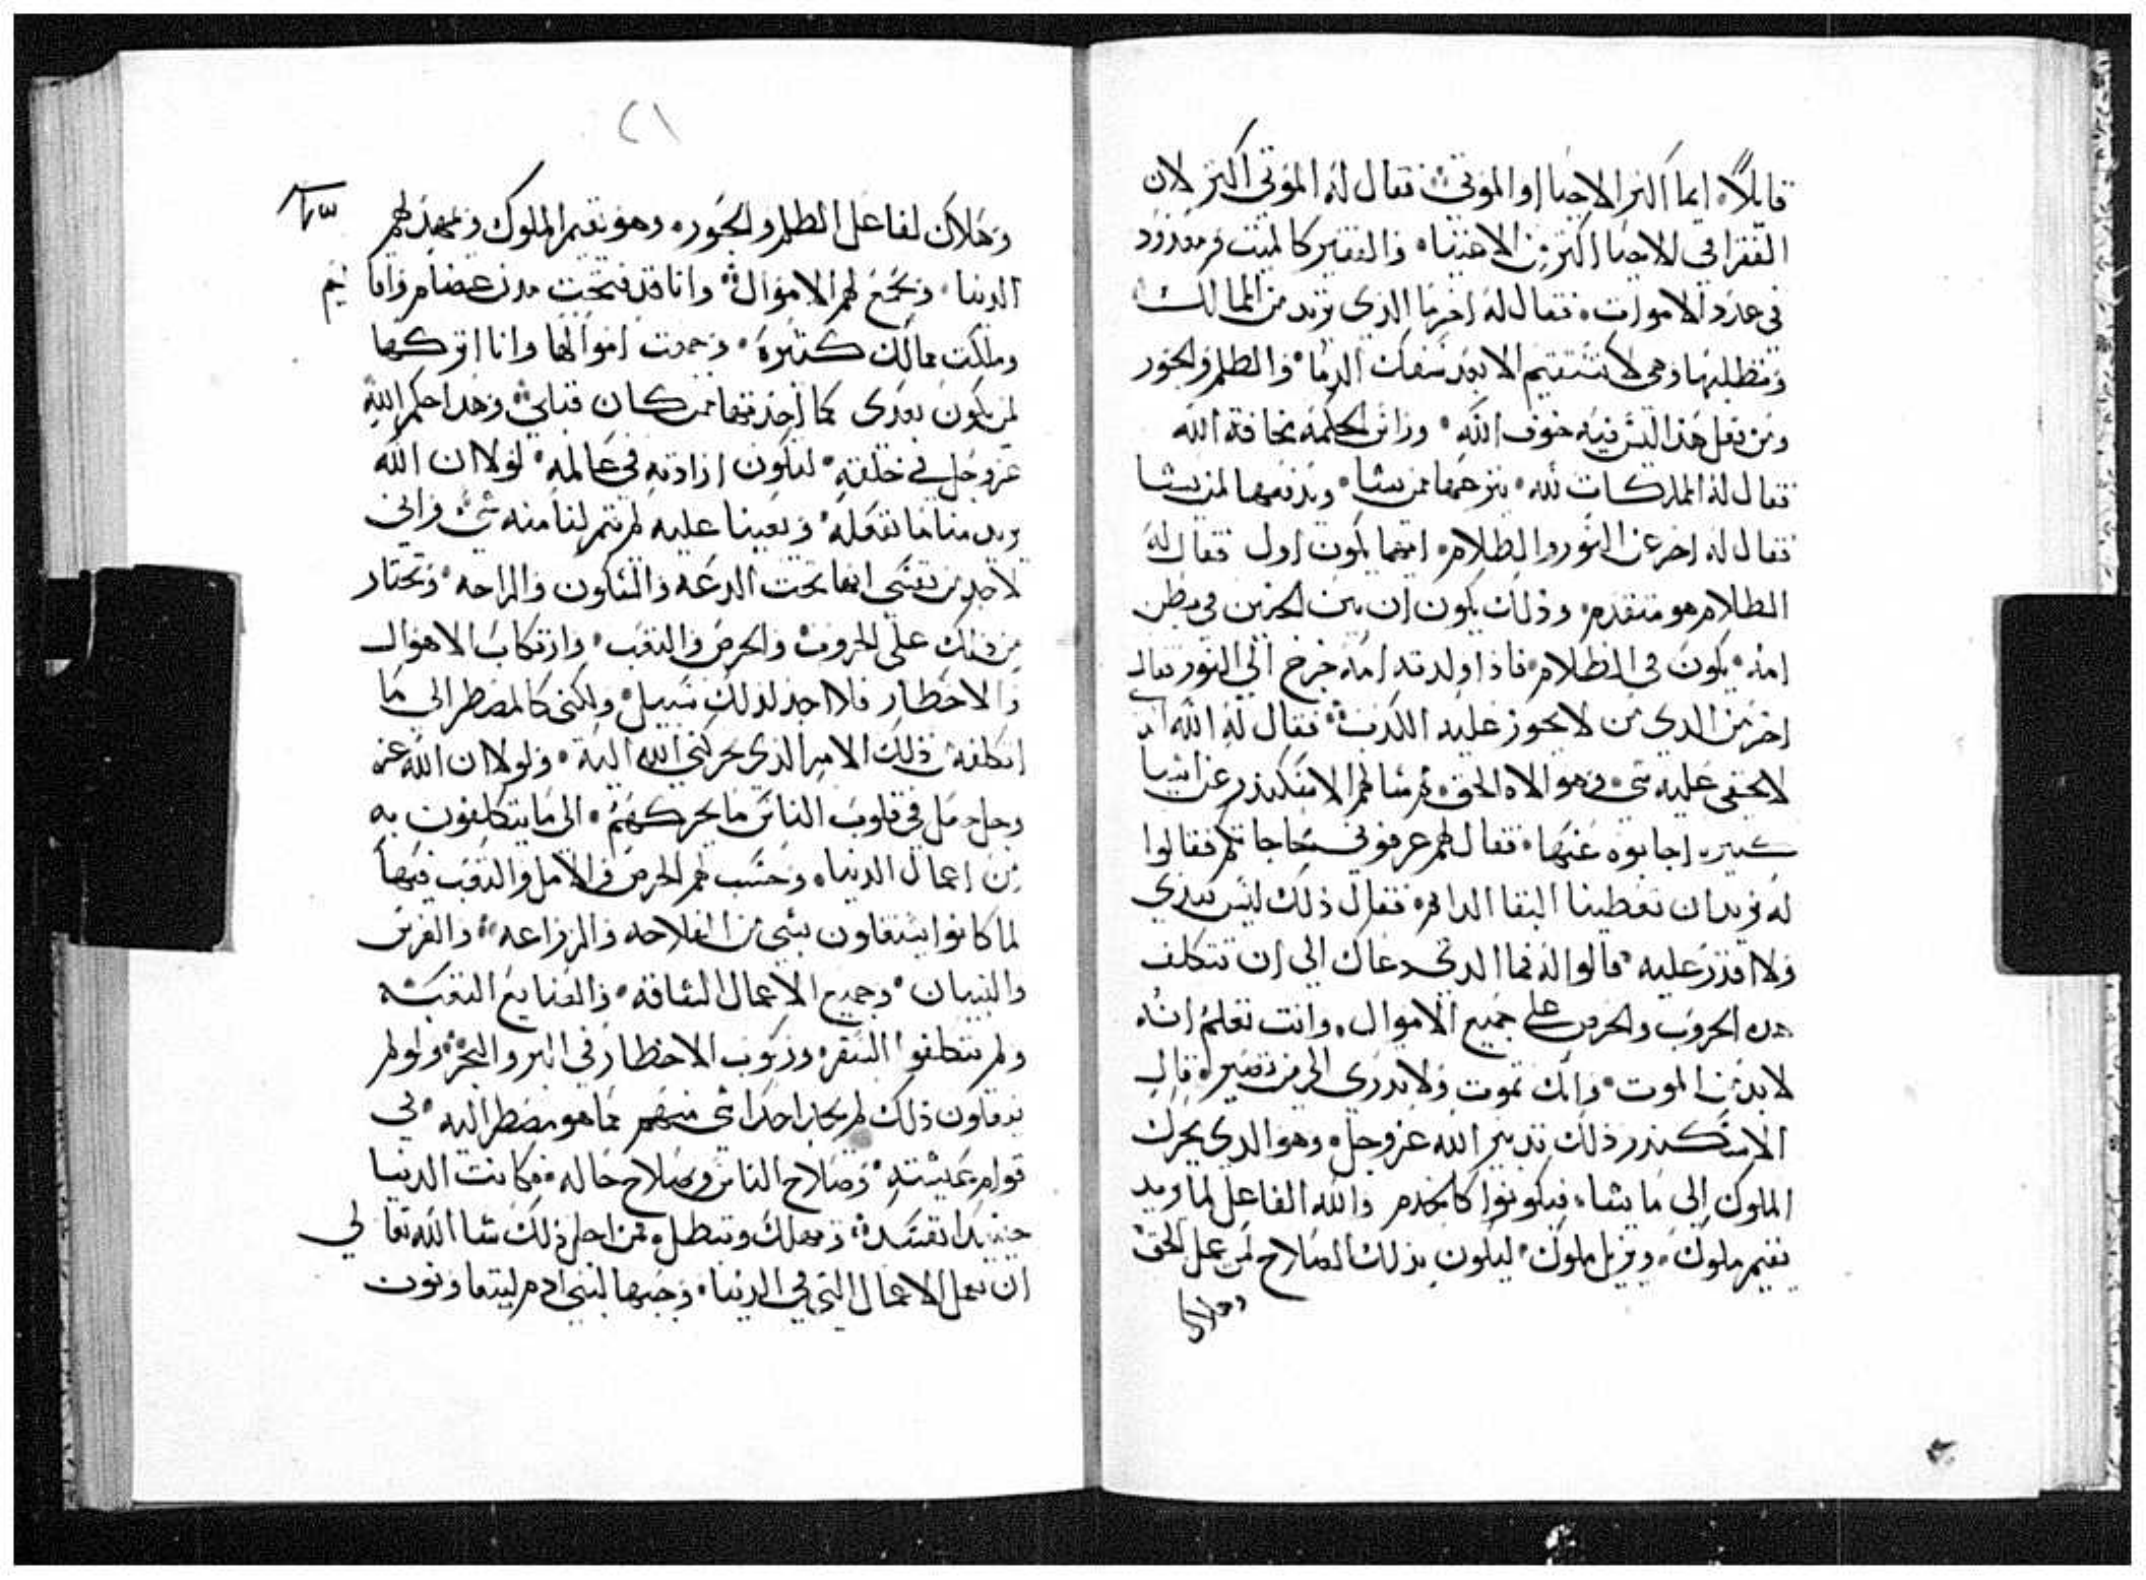 قايلاً، ايما اكثر الاحيا او الموتى فقال له الموتى اكثر لان
الفقرا في الاحيا اكثر من الاغنيا، والفقير كالميت ومعدود
في عدد الاموات، فقال له اخر ما الذي تريد من الممالك
وتطلبها وهي لا تستقيم الا بعد سفك الدما والظلم والجور
ومن فعل هذا ليس فيه خوف الله وراس الحكمة مخافة الله
فقال له المملكات لله ينزعها ممن يشا ويدفعها لمن يشا
فقال له اخر عن النور والظلام ايهما يكون اول فقال له
الظلام هو متقدم وذلك يكون ان الجنين في بطن
امه يكون في الظلام فاذا ولدته امه خرج الى النور فقال
اخر من الدي من لا يجوز عليه الكدب فقال له الله
لا يخفى عليه شي وهو الاه الحق ثم سالهم الاسكندر عن اشيا
كثيره اجابوه عنها فقال لهم عرفوني بحاجاتكم فقالوا
له نريد ان تعطينا البقا الدايم فقال ذلك ليس بيدي
ولا اقدر عليه قالوا له فما الدي دعاك الى ان تتكلف
هده الحروب والحرص على جميع الاموال وانت تعلم انه
لا بد من الموت وانك تموت ولا تدري الى من تصير قال
الاسكندر ذلك تدبير الله عز وجل وهو الدي يحرك
الملوك الى ما يشا فيكونوا كالخدم والله الفاعل لما يريد
يقيم ملوك ويزيل ملوك ليكون بذلك الصلاح لمن عمل الحق
وهلاك
٢١
وهلاك لفاعل الظلم والجور وهو يقيم الملوك ويمهد لهم
الدنيا ويجمع لهم الاموال وانا قد فتحت مدن عضام واقاليم
وملكت ممالك كثيرة وجمعت اموالها وانا اتركها
لمن يكون بعدي كما اخدتها ممن كان قبلي وهدا حكم الله
عز وجل في خلقه ليكون ارادته في عالمه لولا ان الله
يريد منا ما نفعله ويعينا عليه لم يتم لنا منه شي واني
لاجد من نفسي انها تحب الدعه والسكون والراحه وتختار
من دلك على الحروب والحرص والتعب وارتكاب الاهوال
والاخطار فلا اجد لدلك سبيل ولكني كالمضطر الى ما
اتكلفه من ذلك الامر الذي يحركني الله اليه ولولا ان الله عز
وجل جعل في قلوب الناس ما يحركهم الى ما يتكلفون به
من اعمال الدنيا وحبب لهم الحرص والامل والتعب فيها
لما كانوا يشتغلون بشي من الفلاحه والزراعه والغرس
والبنيان وجميع الاعمال الشاقه والصنايع التعبه
ولم يتكلفوا السفر وركوب الاخطار في البر والبحر ولو لم
يفعلون ذلك لم يجد احدا شي منهم مما هو مضطر اليه في
قوام عيشته وصلاح الناس وصلاح حاله فكانت الدنيا
حينيد تفسد وتهلك وتبطل فمن اجل ذلك شا الله تعالي
ان يعمل الاعمال التي في الدنيا وحببها لبني ادم ليتعاونون